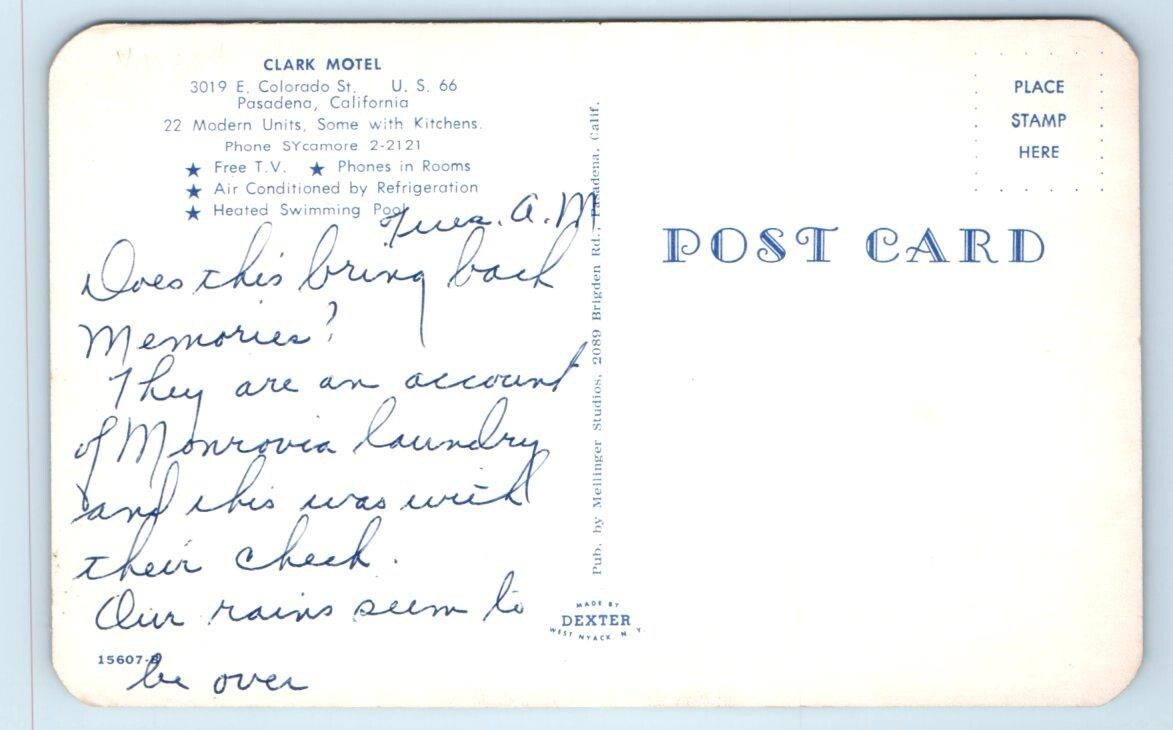 CLARK MOTEL
3019 E. Colorado St. U. S. 66
Pasadena, California
22 Modern Units, Some with Kitchens.
Phone SYcamore 2-2121
★ Free T.V. ★ Phones in Rooms
★ Air Conditioned by Refrigeration
★ Heated Swimming Pool
Tues. A.M
Does this bring back
Memories?
They are an account
of Monrovia laundry
and this was with
their check.
Our rains seem to
be over
15607-B
Pub. by Mellinger Studios, 2089 Brigden Rd., Pasadena, Calif.
MADE BY
DEXTER
WEST NYACK, N. Y.
PLACE
STAMP
HERE
POST CARD